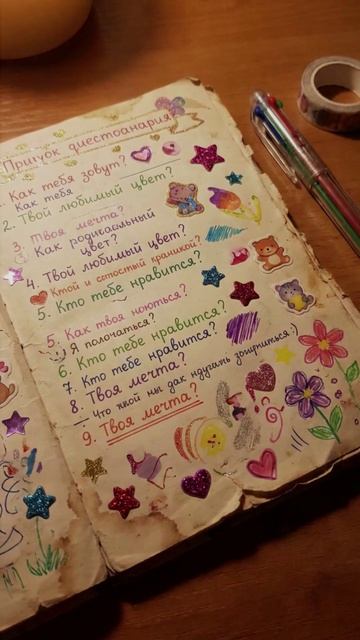 Пришуок диестоанария
1. Как тебя зовут?
Как тебя
2. Твой любимый цвет?
3. Твоя мечта?
Как родигаельный
цвет?
4. Твой любимый цвет?
Ктой и сстостый храникой?
5. Кто тебе нравится?
5. Как твоя ноються?
Я полочаться?
6. Кто тебе нравится?
7. Кто тебе нравится?
8. Твоя мечта?
Что ткой ны дак
9. Твоя мечта?